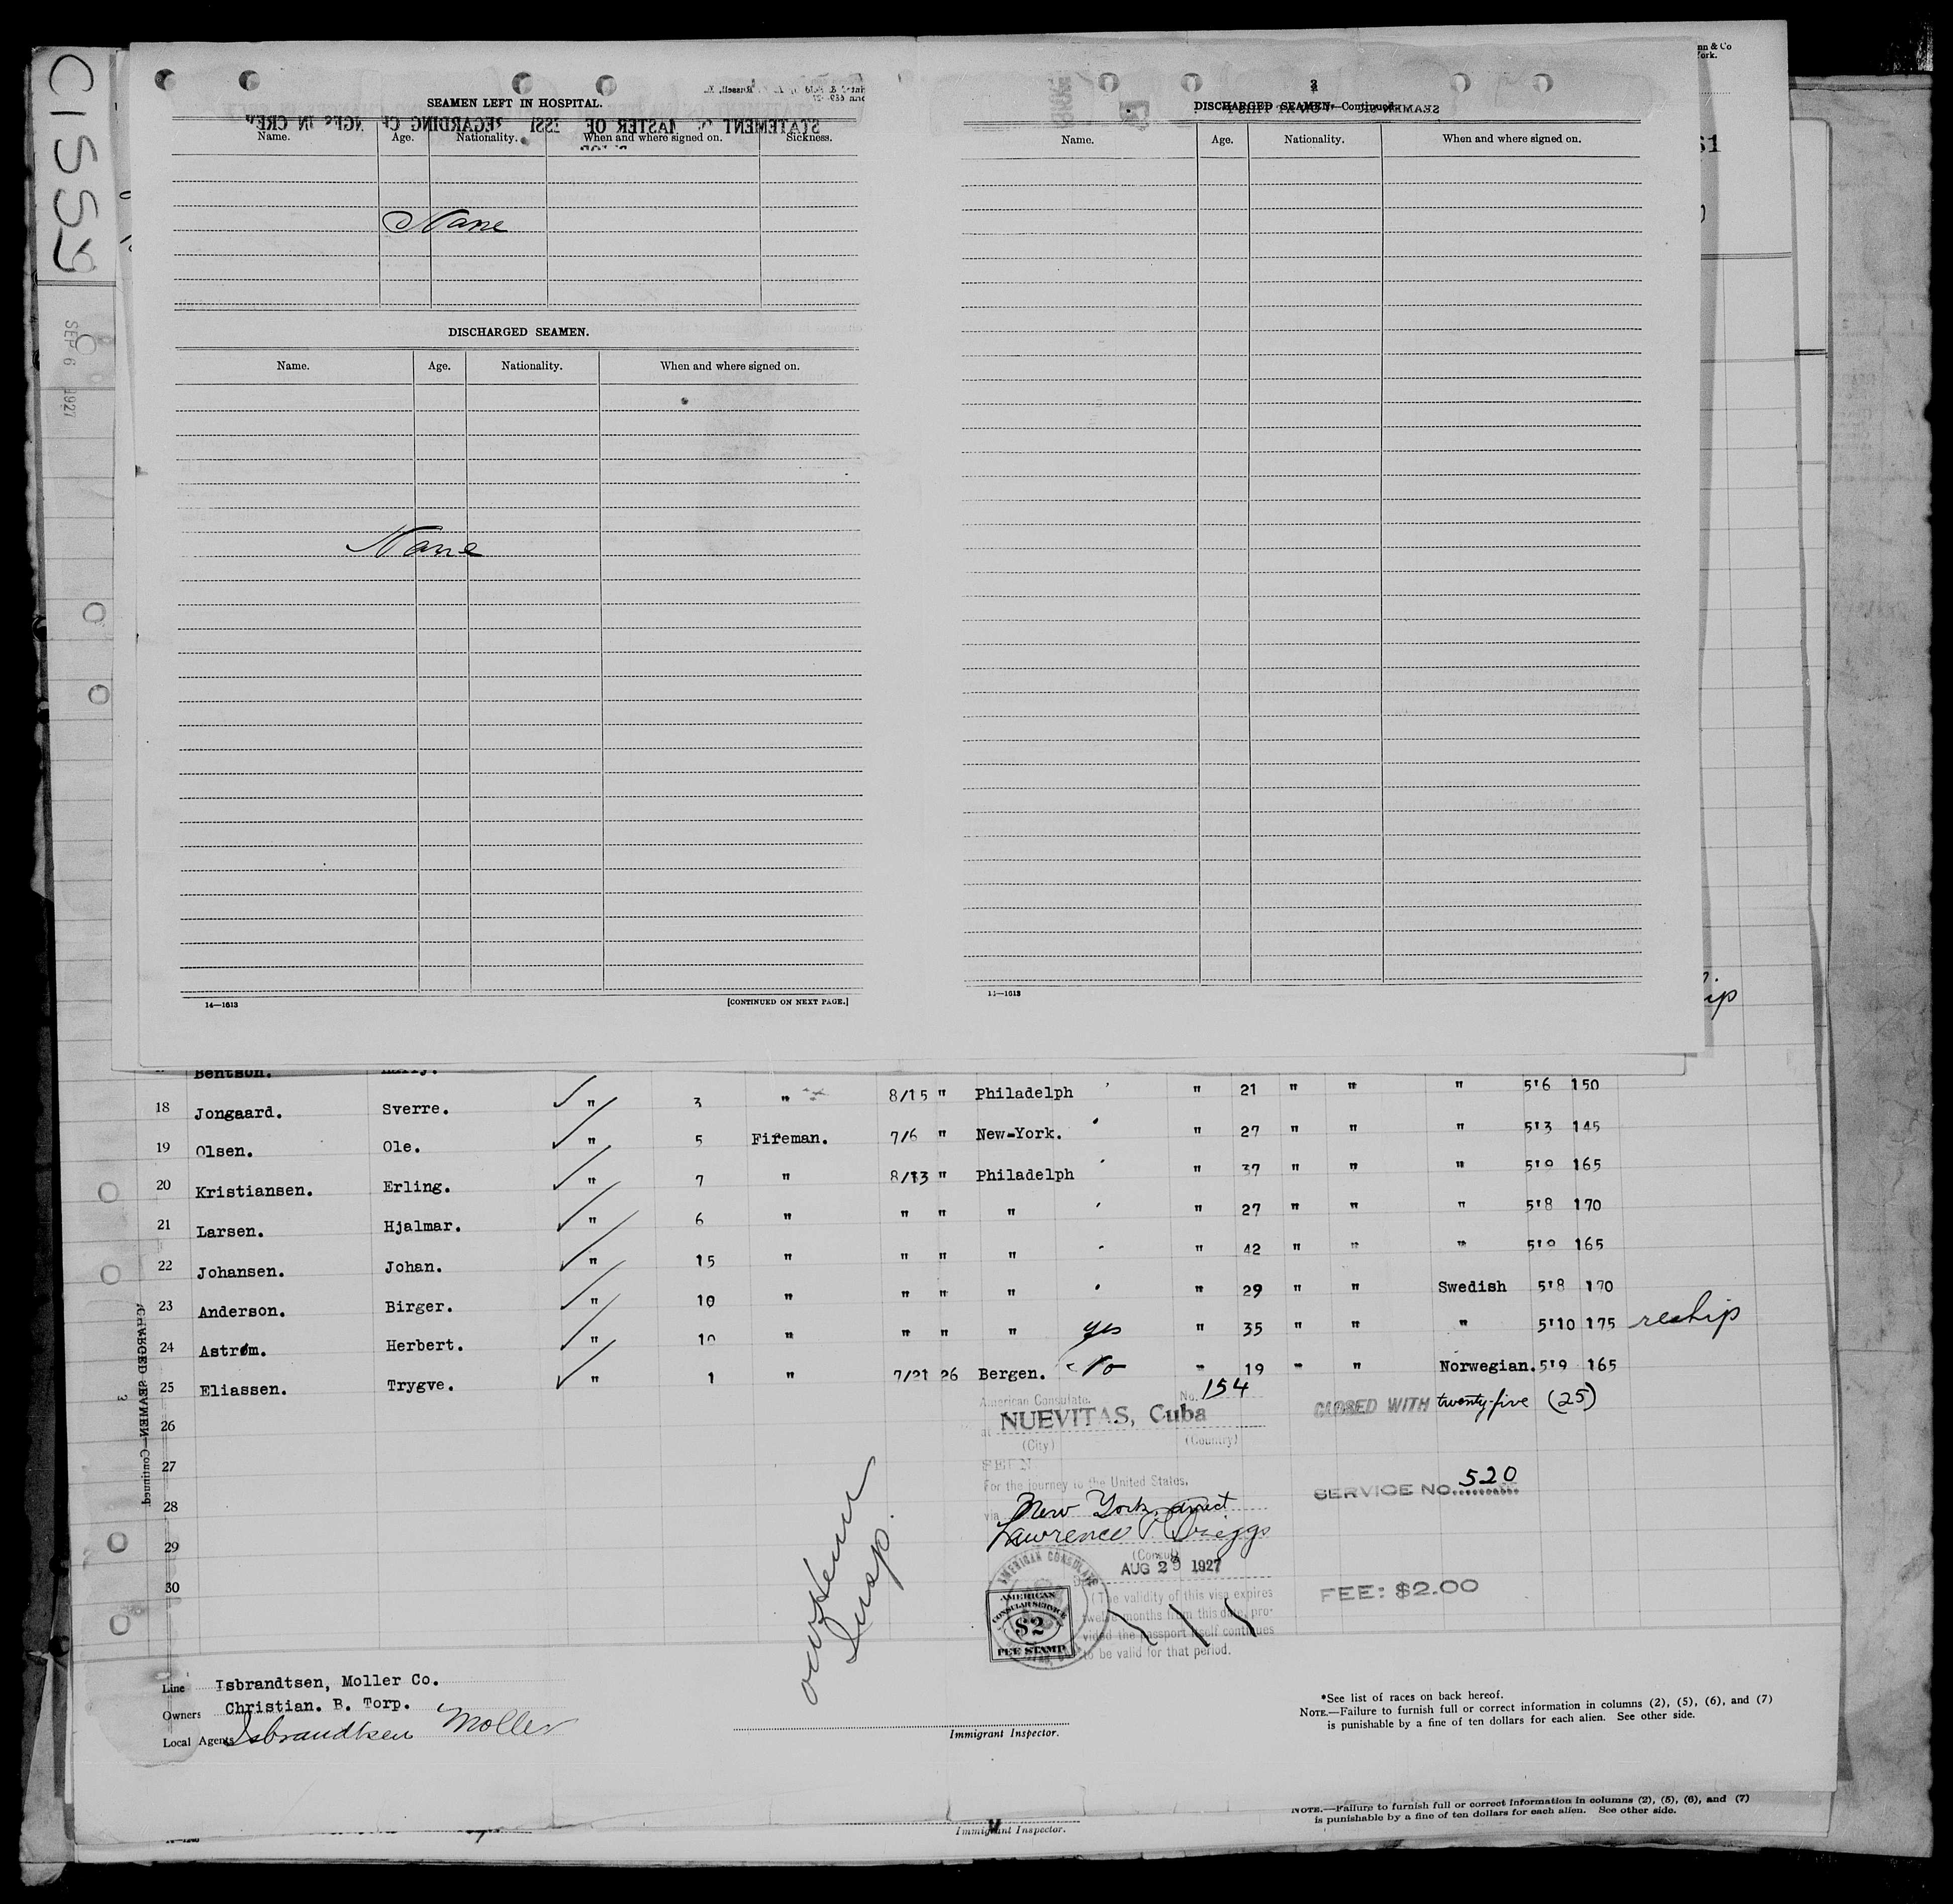 CISS9
SEP 6 1927
SEAMEN LEFT IN HOSPITAL.
Name. Age. Nationality. When and where signed on. Sickness.
None
DISCHARGED SEAMEN.
Name. Age. Nationality. When and where signed on.
None
14—1613 [CONTINUED ON NEXT PAGE.]
3
DISCHARGED SEAMEN—Continued.
Name. Age. Nationality. When and where signed on.
14—1613
Bentson. Harry.
18 Jongaard. Sverre. " 3 " 8/15 " Philadelph " 21 " " " 5'6 150
19 Olsen. Ole. " 5 Fireman. 7/6 " New-York. " 27 " " " 5'3 145
20 Kristiansen. Erling. " 7 " 8/13 " Philadelph " 37 " " " 5'9 165
21 Larsen. Hjalmar. " 6 " " " " " 27 " " " 5'8 170
22 Johansen. Johan. " 15 " " " " " 42 " " " 5'9 165
23 Anderson. Birger. " 10 " " " " " 29 " " Swedish 5'8 170
24 Astrøm. Herbert. " 10 " " " " yes " 35 " " " 5'10 175 reship
25 Eliassen. Trygve. " 1 " 7/21 26 Bergen. No " 19 " " Norwegian. 5'9 165
26
27
28
29
30
American Consulate. No. 154
at NUEVITAS, Cuba
(City) (Country)
SEEN
For the journey to the United States.
via New York, direct
Lawrence P. Briggs
(Consul)
AUG 29 1927
(The validity of this visa expires
twelve months from this date, pro-
vided the passport itself continues
to be valid for that period.
AMERICAN CONSULATE
AMERICAN
CONSULAR SERVICE
$2
FEE STAMP
CLOSED WITH twenty-five (25)
SERVICE NO. 520
FEE: $2.00
Insp.
DISCHARGED SEAMEN—Continued.
3
Line Isbrandtsen, Moller Co.
Owners Christian. B. Torp.
Local Agents Isbrandtsen Moller
Immigrant Inspector.
*See list of races on back hereof.
NOTE.—Failure to furnish full or correct information in columns (2), (5), (6), and (7)
is punishable by a fine of ten dollars for each alien. See other side.
NOTE.—Failure to furnish full or correct information in columns (2), (5), (6), and (7)
is punishable by a fine of ten dollars for each alien. See other side.
Immigrant Inspector.